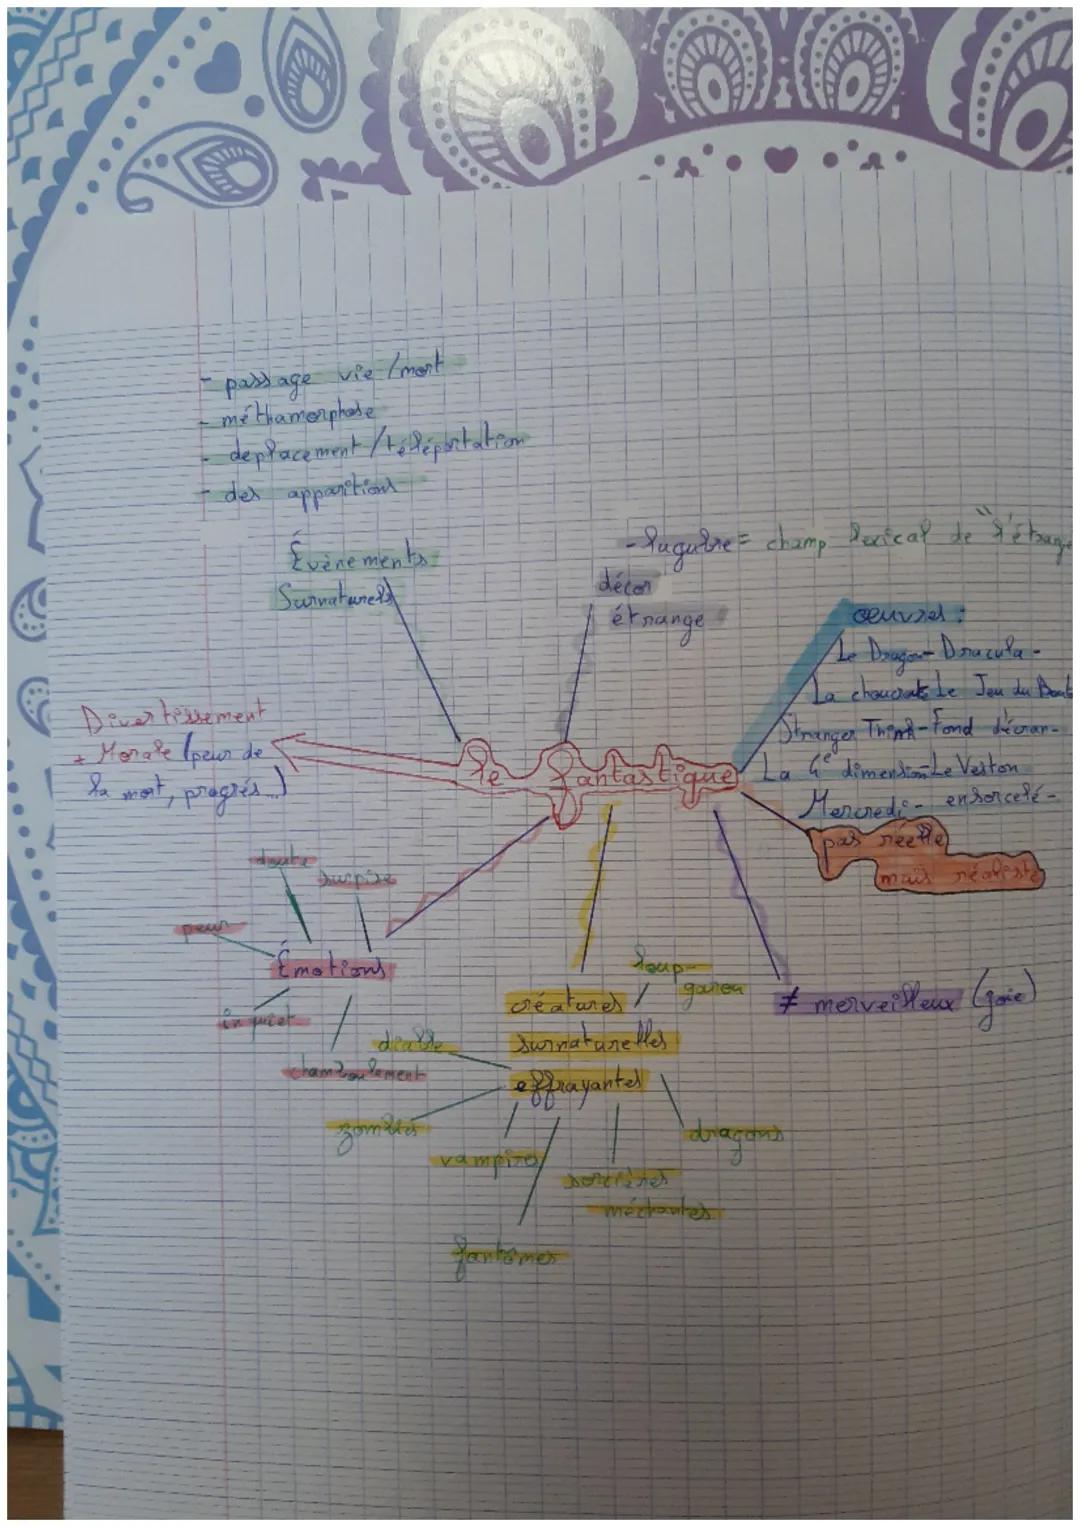 - passage vie / mort
- méthamorphose
- deplacement / téléportation
- des apparitions
Évènements
Surnaturels
- lugubre = champ lexical de "l'étrange
décor
étrange
œuvres :
Le Dragon - Dracula -
La choucroute Le Jeu du Bout
Stranger Things - Fond d'écran -
La 4e dimension - Le Veston
Mercredi - ensorcelé -
Divertissement
+ Morale (peur de
la mort, progrés...)
le fantastique
pas réelle
mais réaliste
doute
surpise
peur
Émotions
inquiet
chamboulement
loup-
garou
créatures
surnaturelles
effrayantes
≠ merveilleux (joie)
diable
zombies
vampires
dragons
sorcières
méchantes
fantômes